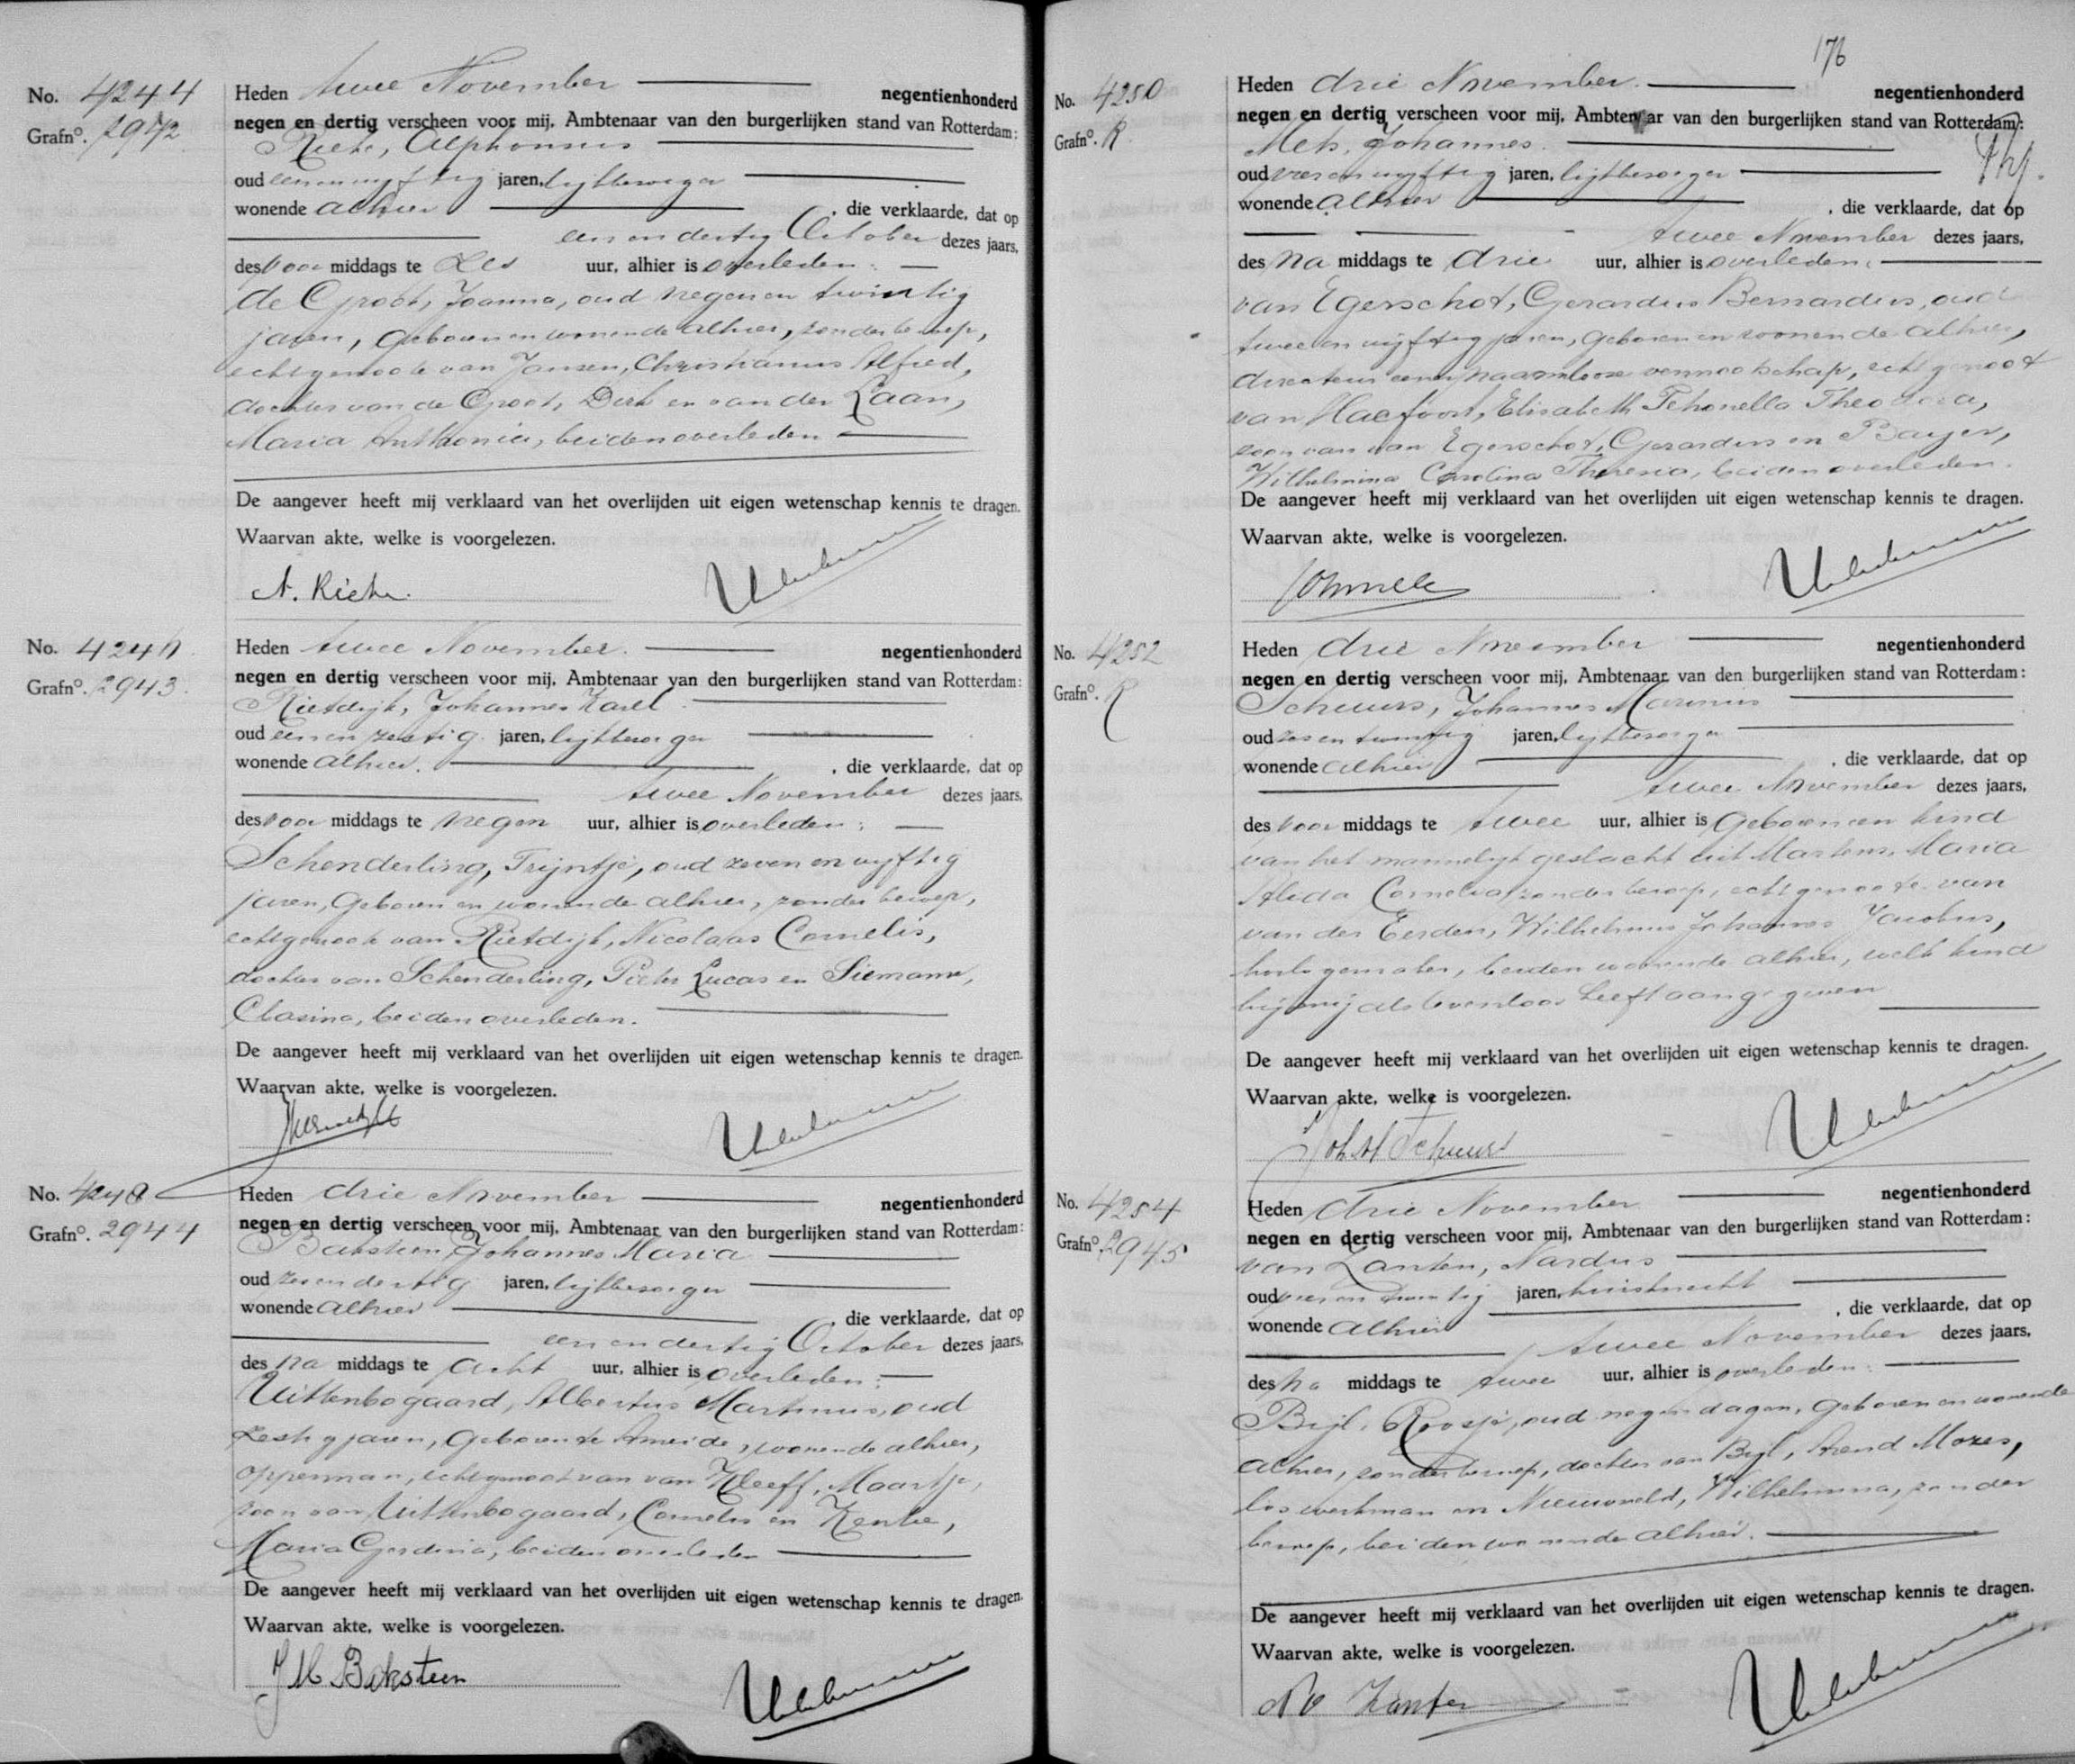 No. 4244
Grafno. 2942
Heden twee November negentienhonderd
negen en dertig verscheen voor mij, Ambtenaar van den burgerlijken stand van Rotterdam:
Alphonsus
oud een en vijftig jaren, lijkbezorger
wonende alhier , die verklaarde, dat op
een en dertig October dezes jaars,
des voor middags te zes uur, alhier is overleden:
de Groot, Joanna, oud negen en twintig
jaren, geboren en wonende alhier, zonder beroep,
echtgenoote van Jansen, Christianus Alfred,
dochter van de Groot, Dirk en van der Laan,
Maria Anthonia, beiden overleden
De aangever heeft mij verklaard van het overlijden uit eigen wetenschap kennis te dragen.
Waarvan akte, welke is voorgelezen.
No. 4246
Grafno. 2943
Heden twee November. negentienhonderd
negen en dertig verscheen voor mij, Ambtenaar van den burgerlijken stand van Rotterdam:
Rietdijk, Johannes Karel
oud een en zestig jaren, lijkbezorger
wonende alhier. , die verklaarde, dat op
twee November dezes jaars,
des voor middags te negen uur, alhier is overleden:
Schenderling, Trijntje, oud zeven en vijftig
jaren, geboren en wonende alhier, zonder beroep,
echtgenoote van Rietdijk, Nicolaas Cornelis,
dochter van Schenderling, Pieter Lucas en Siemann,
Clasina, beiden overleden.
De aangever heeft mij verklaard van het overlijden uit eigen wetenschap kennis te dragen.
Waarvan akte, welke is voorgelezen.
No. 4248
Grafno. 2944
Heden drie November negentienhonderd
negen en dertig verscheen voor mij, Ambtenaar van den burgerlijken stand van Rotterdam:
Baksteen, Johannes Maria
oud zes en dertig jaren, lijkbezorger
wonende alhier , die verklaarde, dat op
een en dertig October dezes jaars,
des na middags te acht uur, alhier is overleden:
Uittenbogaard, Albertus Martinus, oud
zestig jaren, geboren te Ameide, wonende alhier,
opperman, echtgenoot van van Kleeff, Maartje,
zoon van Uittenbogaard, Cornelis en
Maria Gerdina, beiden overleden
De aangever heeft mij verklaard van het overlijden uit eigen wetenschap kennis te dragen.
Waarvan akte, welke is voorgelezen.
JM Baksteen
176
No. 4250
Grafno. R
Heden drie November. negentienhonderd
negen en dertig verscheen voor mij, Ambtenaar van den burgerlijken stand van Rotterdam:
Johannes.
oud en vijftig jaren, lijkbezorger
wonende alhier , die verklaarde, dat op
twee November dezes jaars,
des na middags te drie uur, alhier is overleden:
van Egerschot, Gerardus Bernardus, oud
twee en vijftig jaren, geboren en wonende alhier,
directeur eener naamlooze vennootschap, echtgenoot
van Haefoort, Elisabeth Theodora,
zoon van van Egerschot, Gerardus en Bayer,
Wilhelmina Carolina Theresia, beiden overleden.
De aangever heeft mij verklaard van het overlijden uit eigen wetenschap kennis te dragen.
Waarvan akte, welke is voorgelezen.
No. 4252
Grafno. R
Heden drie November negentienhonderd
negen en dertig verscheen voor mij, Ambtenaar van den burgerlijken stand van Rotterdam:
Schuurs, Johannes Marinus
oud zes en twintig jaren, lijkbezorger
wonende alhier , die verklaarde, dat op
twee November dezes jaars,
des voor middags te twee uur, alhier is geboren een kind
van het mannelijk geslacht uit Martens, Maria
Alida Cornelia, zonder beroep, echtgenoote van
van der Eerden, Wilhelmus Johannes Jacobus,
horlogemaker, beiden wonende alhier, welk kind
hij mij als levenloos heeft aangegeven
De aangever heeft mij verklaard van het overlijden uit eigen wetenschap kennis te dragen.
Waarvan akte, welke is voorgelezen.
Joh M Schuurs
No. 4254
Grafno. 2945
Heden drie November negentienhonderd
negen en dertig verscheen voor mij, Ambtenaar van den burgerlijken stand van Rotterdam:
van Zanten, Nardus
oud en twintig jaren, huisknecht
wonende alhier , die verklaarde, dat op
twee November dezes jaars,
des na middags te twee uur, alhier is overleden:
Bijl, Roosje, oud negen dagen, geboren en wonende
alhier, zonder beroep, dochter van Bijl, Arend Mozes,
los werkman en Nieuwveld, Wilhelmina, zonder
beroep, beiden wonende alhier.
De aangever heeft mij verklaard van het overlijden uit eigen wetenschap kennis te dragen.
Waarvan akte, welke is voorgelezen.